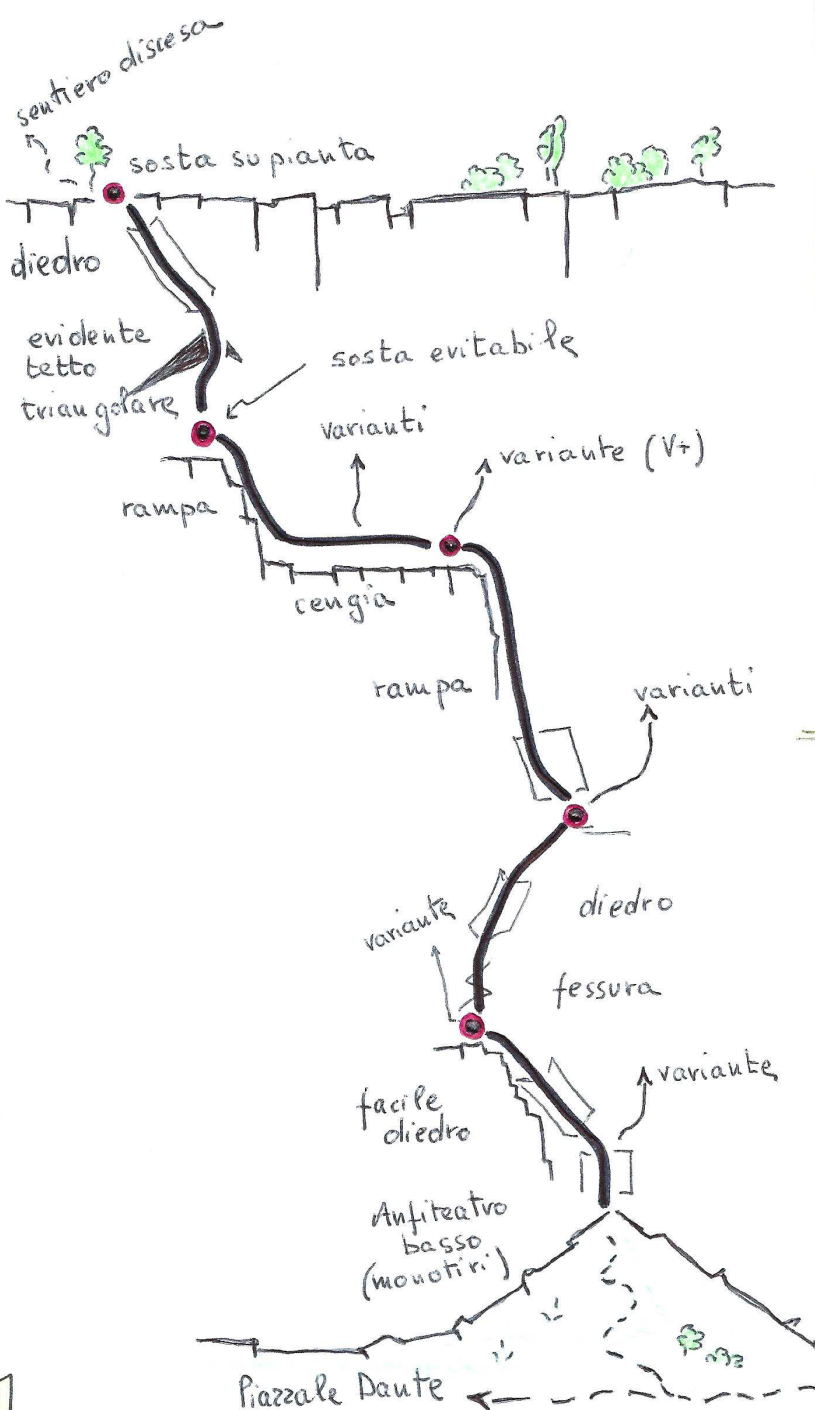 sentiero discesa
sosta su pianta
diedro
evidente
tetto
triangolare
sosta evitabile
varianti
variante (V+)
rampa
cengia
rampa
varianti
diedro
variante
fessura
variante
facile
diedro
Anfiteatro
basso
(monotiri)
Piazzale Dante